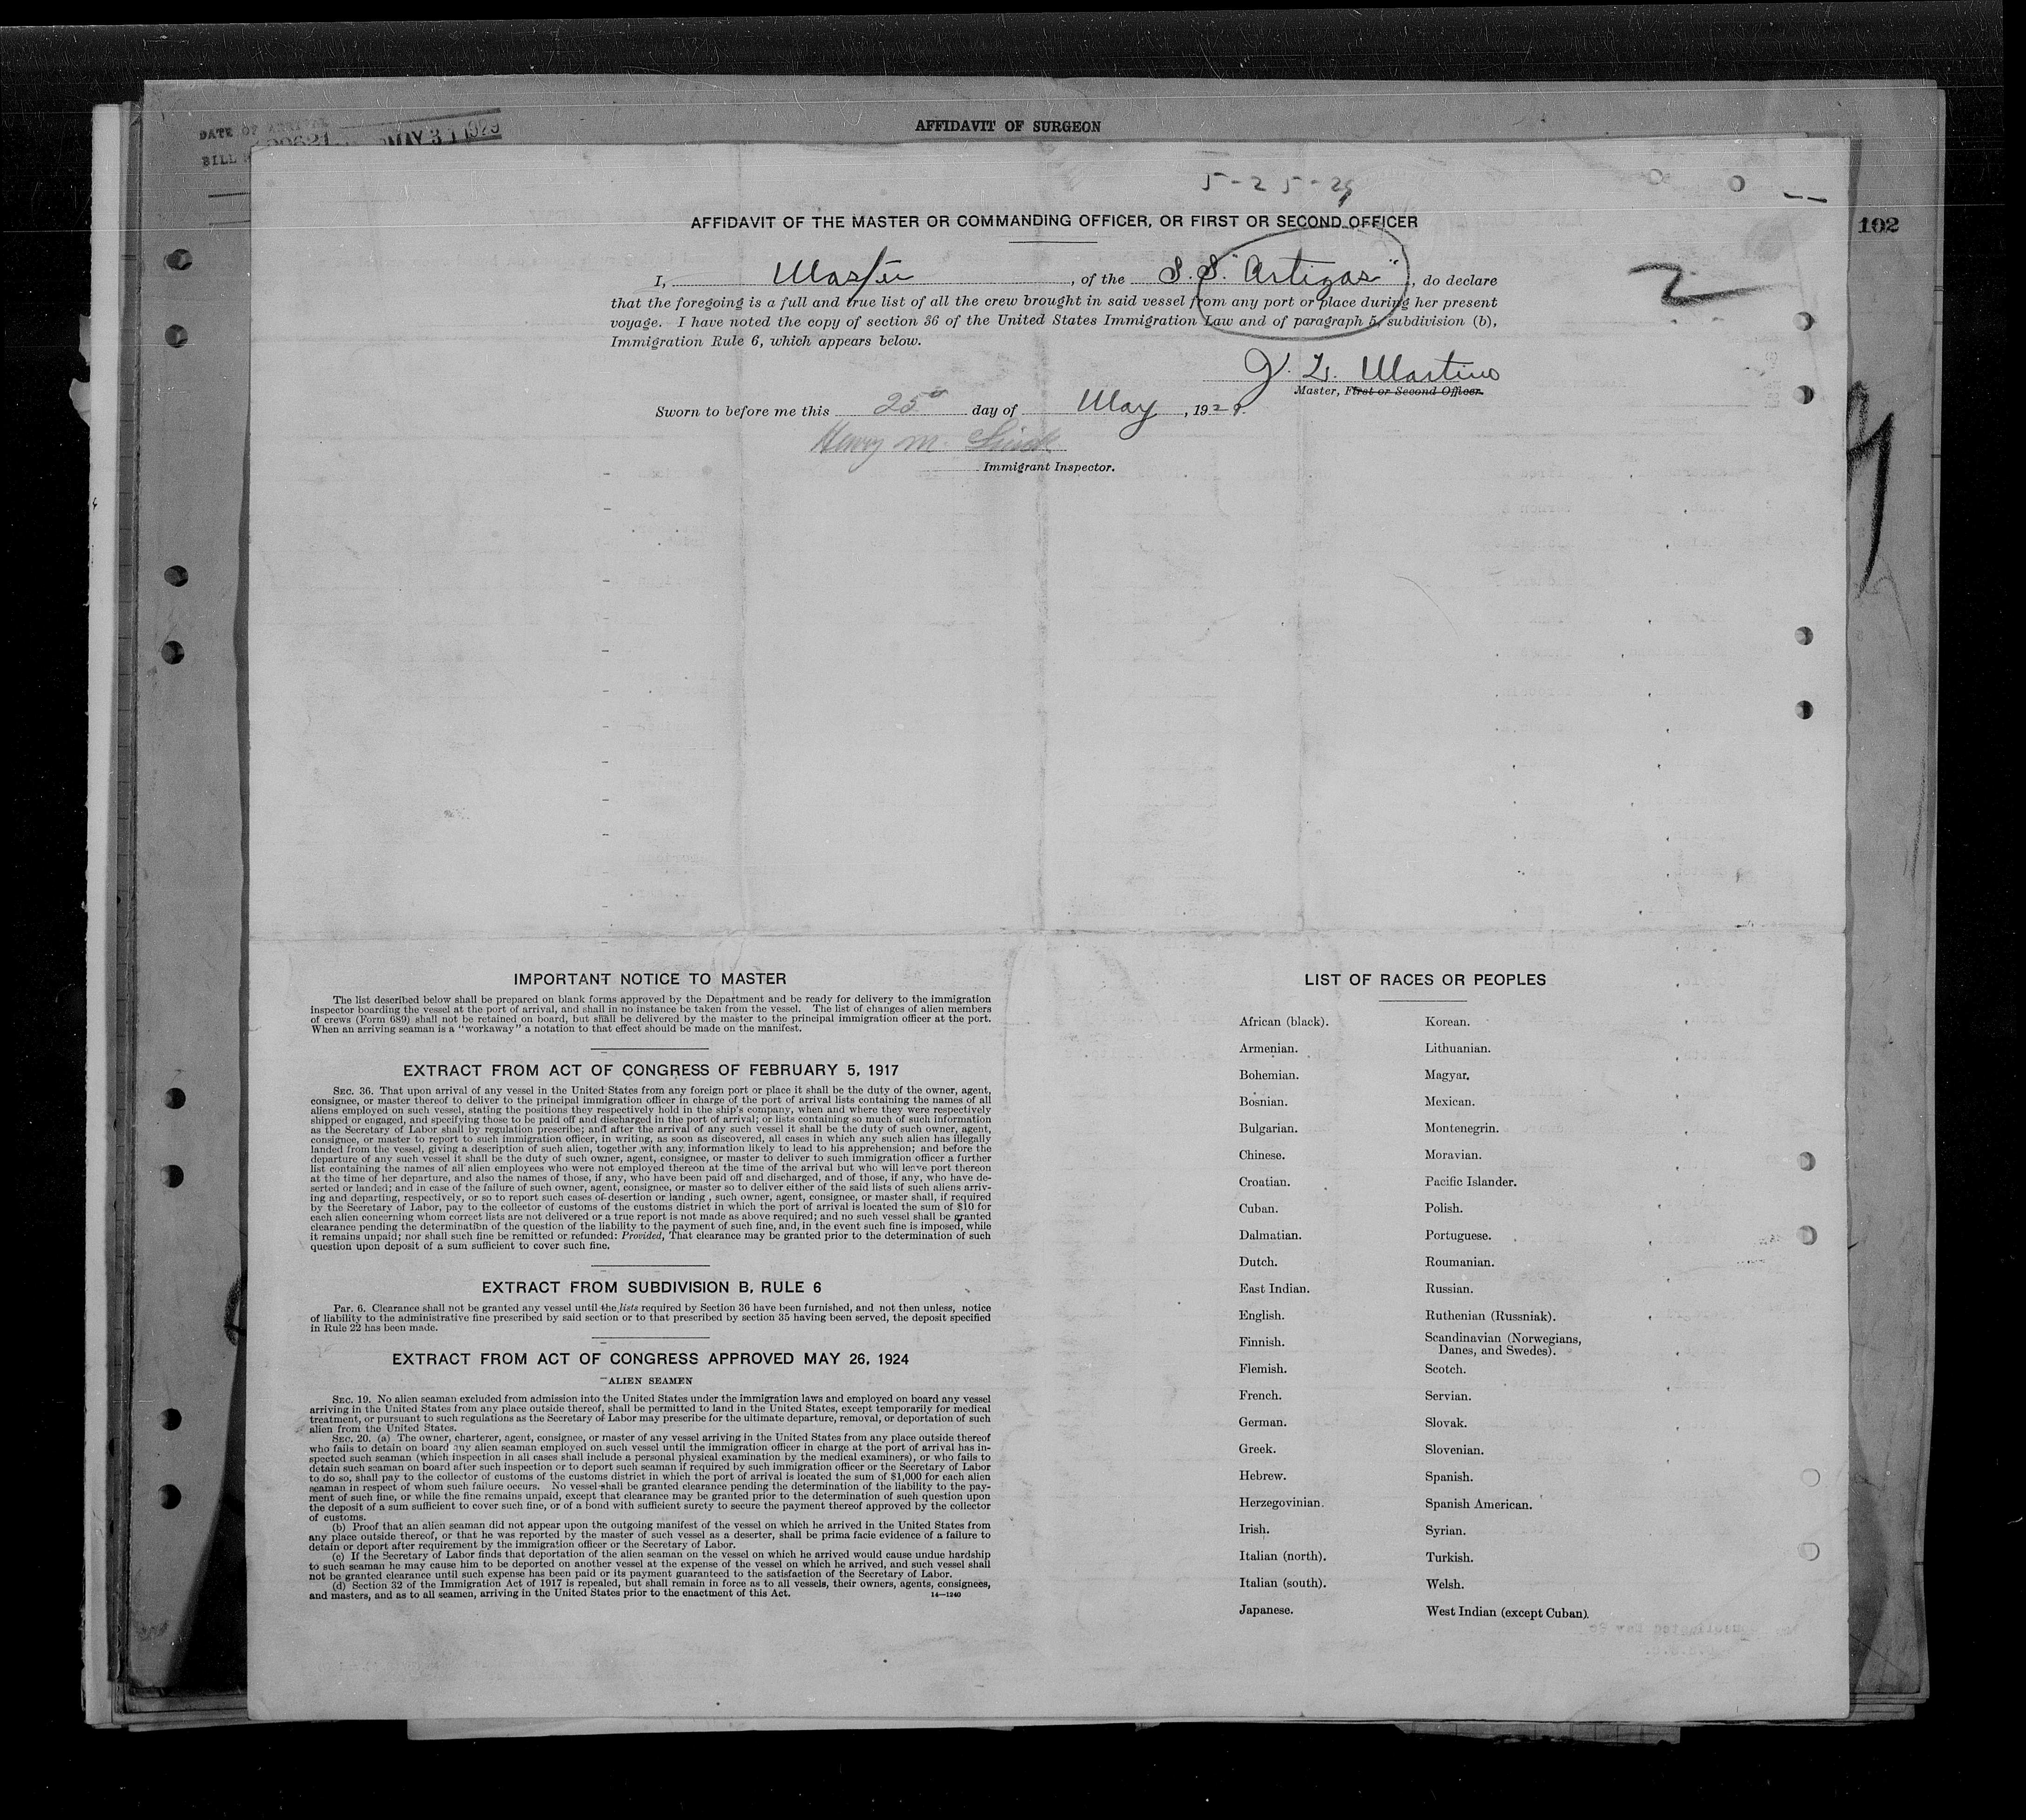 DATE OF ARRIVAL
BILL
MAY 31 1929
AFFIDAVIT OF SURGEON
5-25-29
102
2
AFFIDAVIT OF THE MASTER OR COMMANDING OFFICER, OR FIRST OR SECOND OFFICER
I, Master, of the S.S. "Artigas", do declare
that the foregoing is a full and true list of all the crew brought in said vessel from any port or place during her present
voyage. I have noted the copy of section 36 of the United States Immigration Law and of paragraph 5, subdivision (b),
Immigration Rule 6, which appears below.
Martino
Master, First or Second Officer.
Sworn to before me this 25th day of May, 1929.
Henry M.
Immigrant Inspector.
IMPORTANT NOTICE TO MASTER
The list described below shall be prepared on blank forms approved by the Department and be ready for delivery to the immigration
inspector boarding the vessel at the port of arrival, and shall in no instance be taken from the vessel. The list of changes of alien members
of crews (Form 689) shall not be retained on board, but shall be delivered by the master to the principal immigration officer at the port.
When an arriving seaman is a "workaway" a notation to that effect should be made on the manifest.
EXTRACT FROM ACT OF CONGRESS OF FEBRUARY 5, 1917
SEC. 36. That upon arrival of any vessel in the United States from any foreign port or place it shall be the duty of the owner, agent,
consignee, or master thereof to deliver to the principal immigration officer in charge of the port of arrival lists containing the names of all
aliens employed on such vessel, stating the positions they respectively hold in the ship's company, when and where they were respectively
shipped or engaged, and specifying those to be paid off and discharged in the port of arrival; or lists containing so much of such information
as the Secretary of Labor shall by regulation prescribe; and after the arrival of any such vessel it shall be the duty of such owner, agent,
consignee, or master to report to such immigration officer, in writing, as soon as discovered, all cases in which any such alien has illegally
landed from the vessel, giving a description of such alien, together with any information likely to lead to his apprehension; and before the
departure of any such vessel it shall be the duty of such owner, agent, consignee, or master to deliver to such immigration officer a further
list containing the names of all alien employees who were not employed thereon at the time of the arrival but who will leave port thereon
at the time of her departure, and also the names of those, if any, who have been paid off and discharged, and of those, if any, who have de-
serted or landed; and in case of the failure of such owner, agent, consignee, or master so to deliver either of the said lists of such aliens arriv-
ing and departing, respectively, or so to report such cases of desertion or landing, such owner, agent, consignee, or master shall, if required
by the Secretary of Labor, pay to the collector of customs of the customs district in which the port of arrival is located the sum of $10 for
each alien concerning whom correct lists are not delivered or a true report is not made as above required; and no such vessel shall be granted
clearance pending the determination of the question of the liability to the payment of such fine, and, in the event such fine is imposed, while
it remains unpaid; nor shall such fine be remitted or refunded: Provided, That clearance may be granted prior to the determination of such
question upon deposit of a sum sufficient to cover such fine.
EXTRACT FROM SUBDIVISION B, RULE 6
Par. 6. Clearance shall not be granted any vessel until the lists required by Section 36 have been furnished, and not then unless, notice
of liability to the administrative fine prescribed by said section or to that prescribed by section 35 having been served, the deposit specified
in Rule 22 has been made.
EXTRACT FROM ACT OF CONGRESS APPROVED MAY 26, 1924
ALIEN SEAMEN
SEC. 19. No alien seaman excluded from admission into the United States under the immigration laws and employed on board any vessel
arriving in the United States from any place outside thereof, shall be permitted to land in the United States, except temporarily for medical
treatment, or pursuant to such regulations as the Secretary of Labor may prescribe for the ultimate departure, removal, or deportation of such
alien from the United States.
SEC. 20. (a) The owner, charterer, agent, consignee, or master of any vessel arriving in the United States from any place outside thereof
who fails to detain on board any alien seaman employed on such vessel until the immigration officer in charge at the port of arrival has in-
spected such seaman (which inspection in all cases shall include a personal physical examination by the medical examiners), or who fails to
detain such seaman on board after such inspection or to deport such seaman if required by such immigration officer or the Secretary of Labor
to do so, shall pay to the collector of customs of the customs district in which the port of arrival is located the sum of $1,000 for each alien
seaman in respect of whom such failure occurs. No vessel shall be granted clearance pending the determination of the liability to the pay-
ment of such fine, or while the fine remains unpaid, except that clearance may be granted prior to the determination of such question upon
the deposit of a sum sufficient to cover such fine, or of a bond with sufficient surety to secure the payment thereof approved by the collector
of customs.
(b) Proof that an alien seaman did not appear upon the outgoing manifest of the vessel on which he arrived in the United States from
any place outside thereof, or that he was reported by the master of such vessel as a deserter, shall be prima facie evidence of a failure to
detain or deport after requirement by the immigration officer or the Secretary of Labor.
(c) If the Secretary of Labor finds that deportation of the alien seaman on the vessel on which he arrived would cause undue hardship
to such seaman he may cause him to be deported on another vessel at the expense of the vessel on which he arrived, and such vessel shall
not be granted clearance until such expense has been paid or its payment guaranteed to the satisfaction of the Secretary of Labor.
(d) Section 32 of the Immigration Act of 1917 is repealed, but shall remain in force as to all vessels, their owners, agents, consignees,
and masters, and as to all seamen, arriving in the United States prior to the enactment of this Act.
14—1240
LIST OF RACES OR PEOPLES
African (black).
Armenian.
Bohemian.
Bosnian.
Bulgarian.
Chinese.
Croatian.
Cuban.
Dalmatian.
Dutch.
East Indian.
English.
Finnish.
Flemish.
French.
German.
Greek.
Hebrew.
Herzegovinian.
Irish.
Italian (north).
Italian (south).
Japanese.
Korean.
Lithuanian.
Magyar.
Mexican.
Montenegrin.
Moravian.
Pacific Islander.
Polish.
Portuguese.
Roumanian.
Russian.
Ruthenian (Russniak).
Scandinavian (Norwegians,
Danes, and Swedes).
Scotch.
Servian.
Slovak.
Slovenian.
Spanish.
Spanish American.
Syrian.
Turkish.
Welsh.
West Indian (except Cuban).